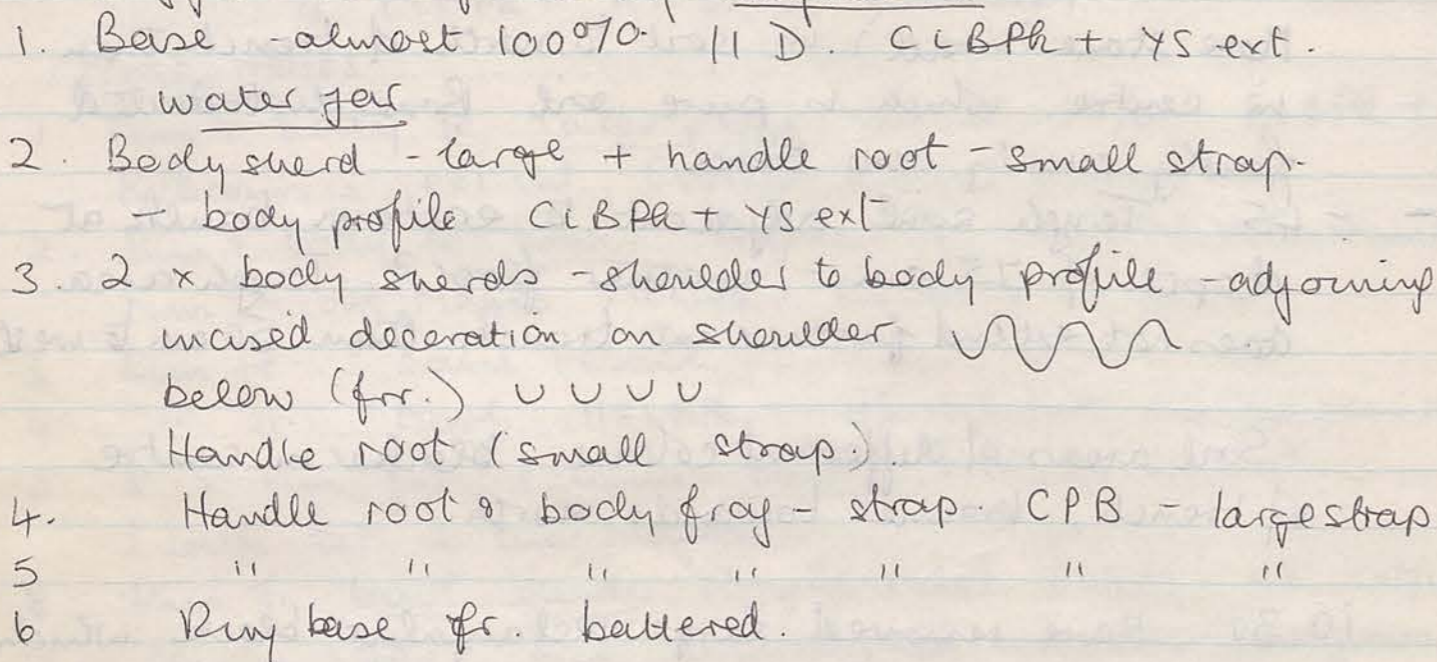 1. Base - almost 100% 11 D. CiBPk + YS ext.
water jar
2. Body sherd - large + handle root - small strap.
- body profile CiBPk + YS ext
3. 2 x body sherds - shoulder to body profile - adjoining
incised decoration on shoulder
below (fr.) ∪ ∪ ∪ ∪
Handle root (small strap).
4. Handle root & body frag - strap. CPB - large strap
5 " " " " " " "
6 Ring base fr. battered.